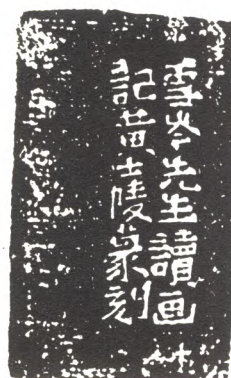 雪岑先生讀画
記黃士陵篆刻